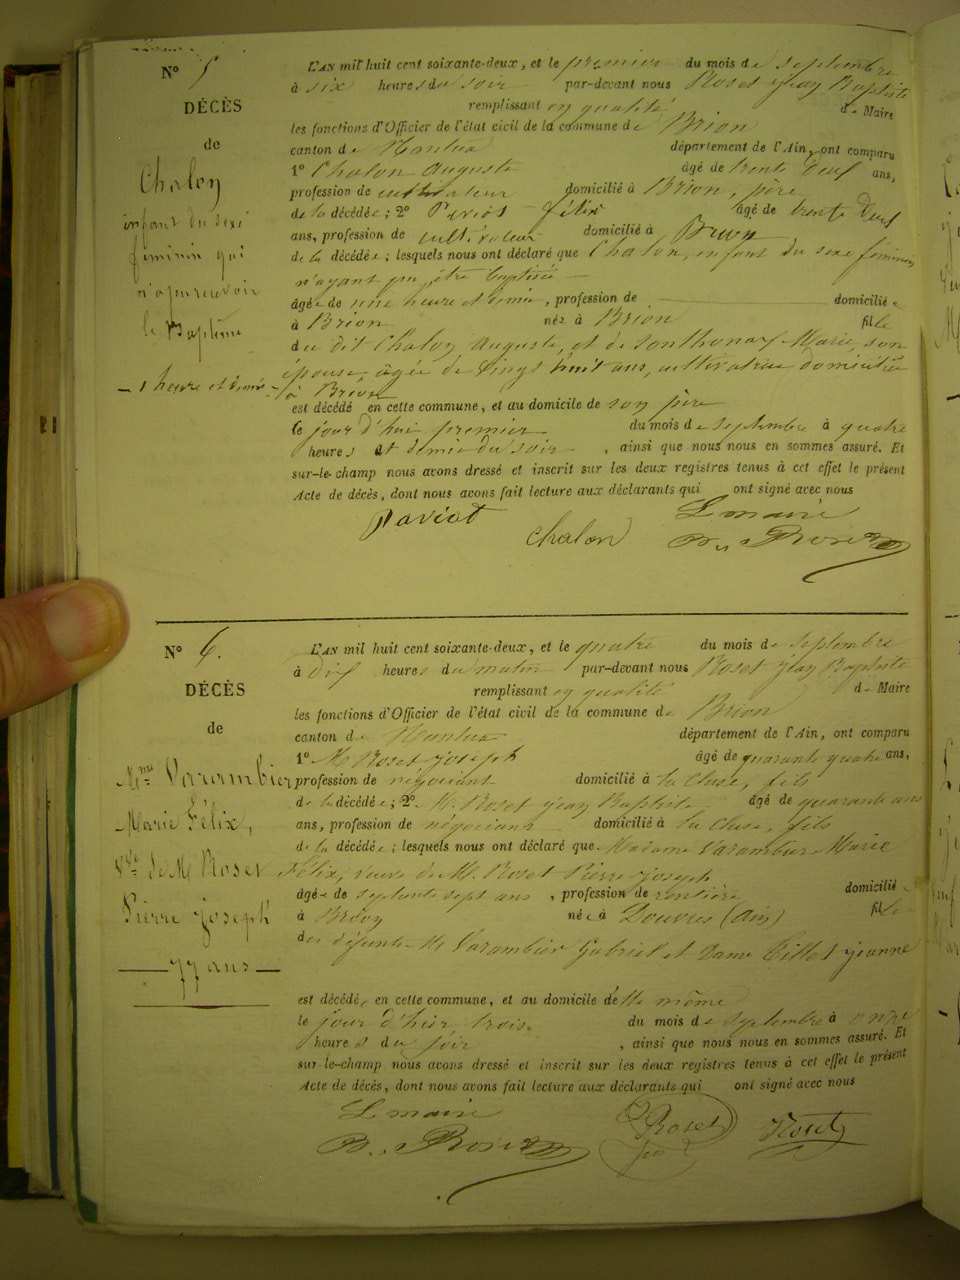 N° 5
DÉCÈS
de
Chalon
enfant du sexe
féminin qui
n'a pu recevoir
le Baptême
— 1 heure et demie —
L'AN mil huit cent soixante-deux, et le premier du mois de septembre
à six heures du soir par-devant nous Roset Jean Baptiste
remplissant en qualité de Maire
les fonctions d'Officier de l'état civil de la commune de Brion
canton de Nantua département de l'Ain, ont comparu
1° Chalon Auguste âgé de trente neuf ans,
profession de cultivateur domicilié à Brion, père
de la décédée ; 2° Paviot Félix âgé de trente neuf
ans, profession de cultivateur domicilié à Brion
de la décédée ; lesquels nous ont déclaré que Chalon, enfant du sexe féminin
n'ayant pu être baptisée —
âgée de une heure et demie, profession de — domiciliée
à Brion née à Brion fille
du dit Chalon Auguste, et de Sonthonax Marie, son
épouse, âgée de vingt huit ans, cultivatrice domiciliée
à Brion
est décédé en cette commune, et au domicile de son père
le jour d'hui premier du mois de septembre à quatre
heures et demie du soir, ainsi que nous nous en sommes assuré. Et
sur-le-champ nous avons dressé et inscrit sur les deux registres tenus à cet effet le présent
Acte de décès, dont nous avons fait lecture aux déclarants qui ont signé avec nous
Paviot Chalon Le maire
Roset
N° 6.
DÉCÈS
de
Mme Varambier
Marie Félix,
Vve de M Roset
Pierre Joseph
— 77 ans —
L'AN mil huit cent soixante-deux, et le quatre du mois de septembre
à dix heures du matin par-devant nous Roset Jean Baptiste
remplissant en qualité de Maire
les fonctions d'Officier de l'état civil de la commune de Brion
canton de Nantua département de l'Ain, ont comparu
1° M. Roset Joseph âgé de quarante quatre ans,
profession de négociant domicilié à La Cluse, fils
de la décédée ; 2° M. Roset Jean Baptiste âgé de quarante
ans, profession de négociant domicilié à La Cluse, fils
de la décédée ; lesquels nous ont déclaré que Madame Varambier Marie
Félix, veuve de M. Roset Pierre Joseph
âgée de septante sept ans, profession de rentière domiciliée
à Brion née à Douvres (Ain) fille
des défunts M. Varambier Gabriel et Dame Jeanne
est décédée, en cette commune, et au domicile d'elle même
le jour d'hier trois du mois de septembre à onze
heures du soir, ainsi que nous nous en sommes assuré. Et
sur-le-champ nous avons dressé et inscrit sur les deux registres tenus à cet effet le présent
Acte de décès, dont nous avons fait lecture aux déclarants qui ont signé avec nous
Le maire
Roset Roset